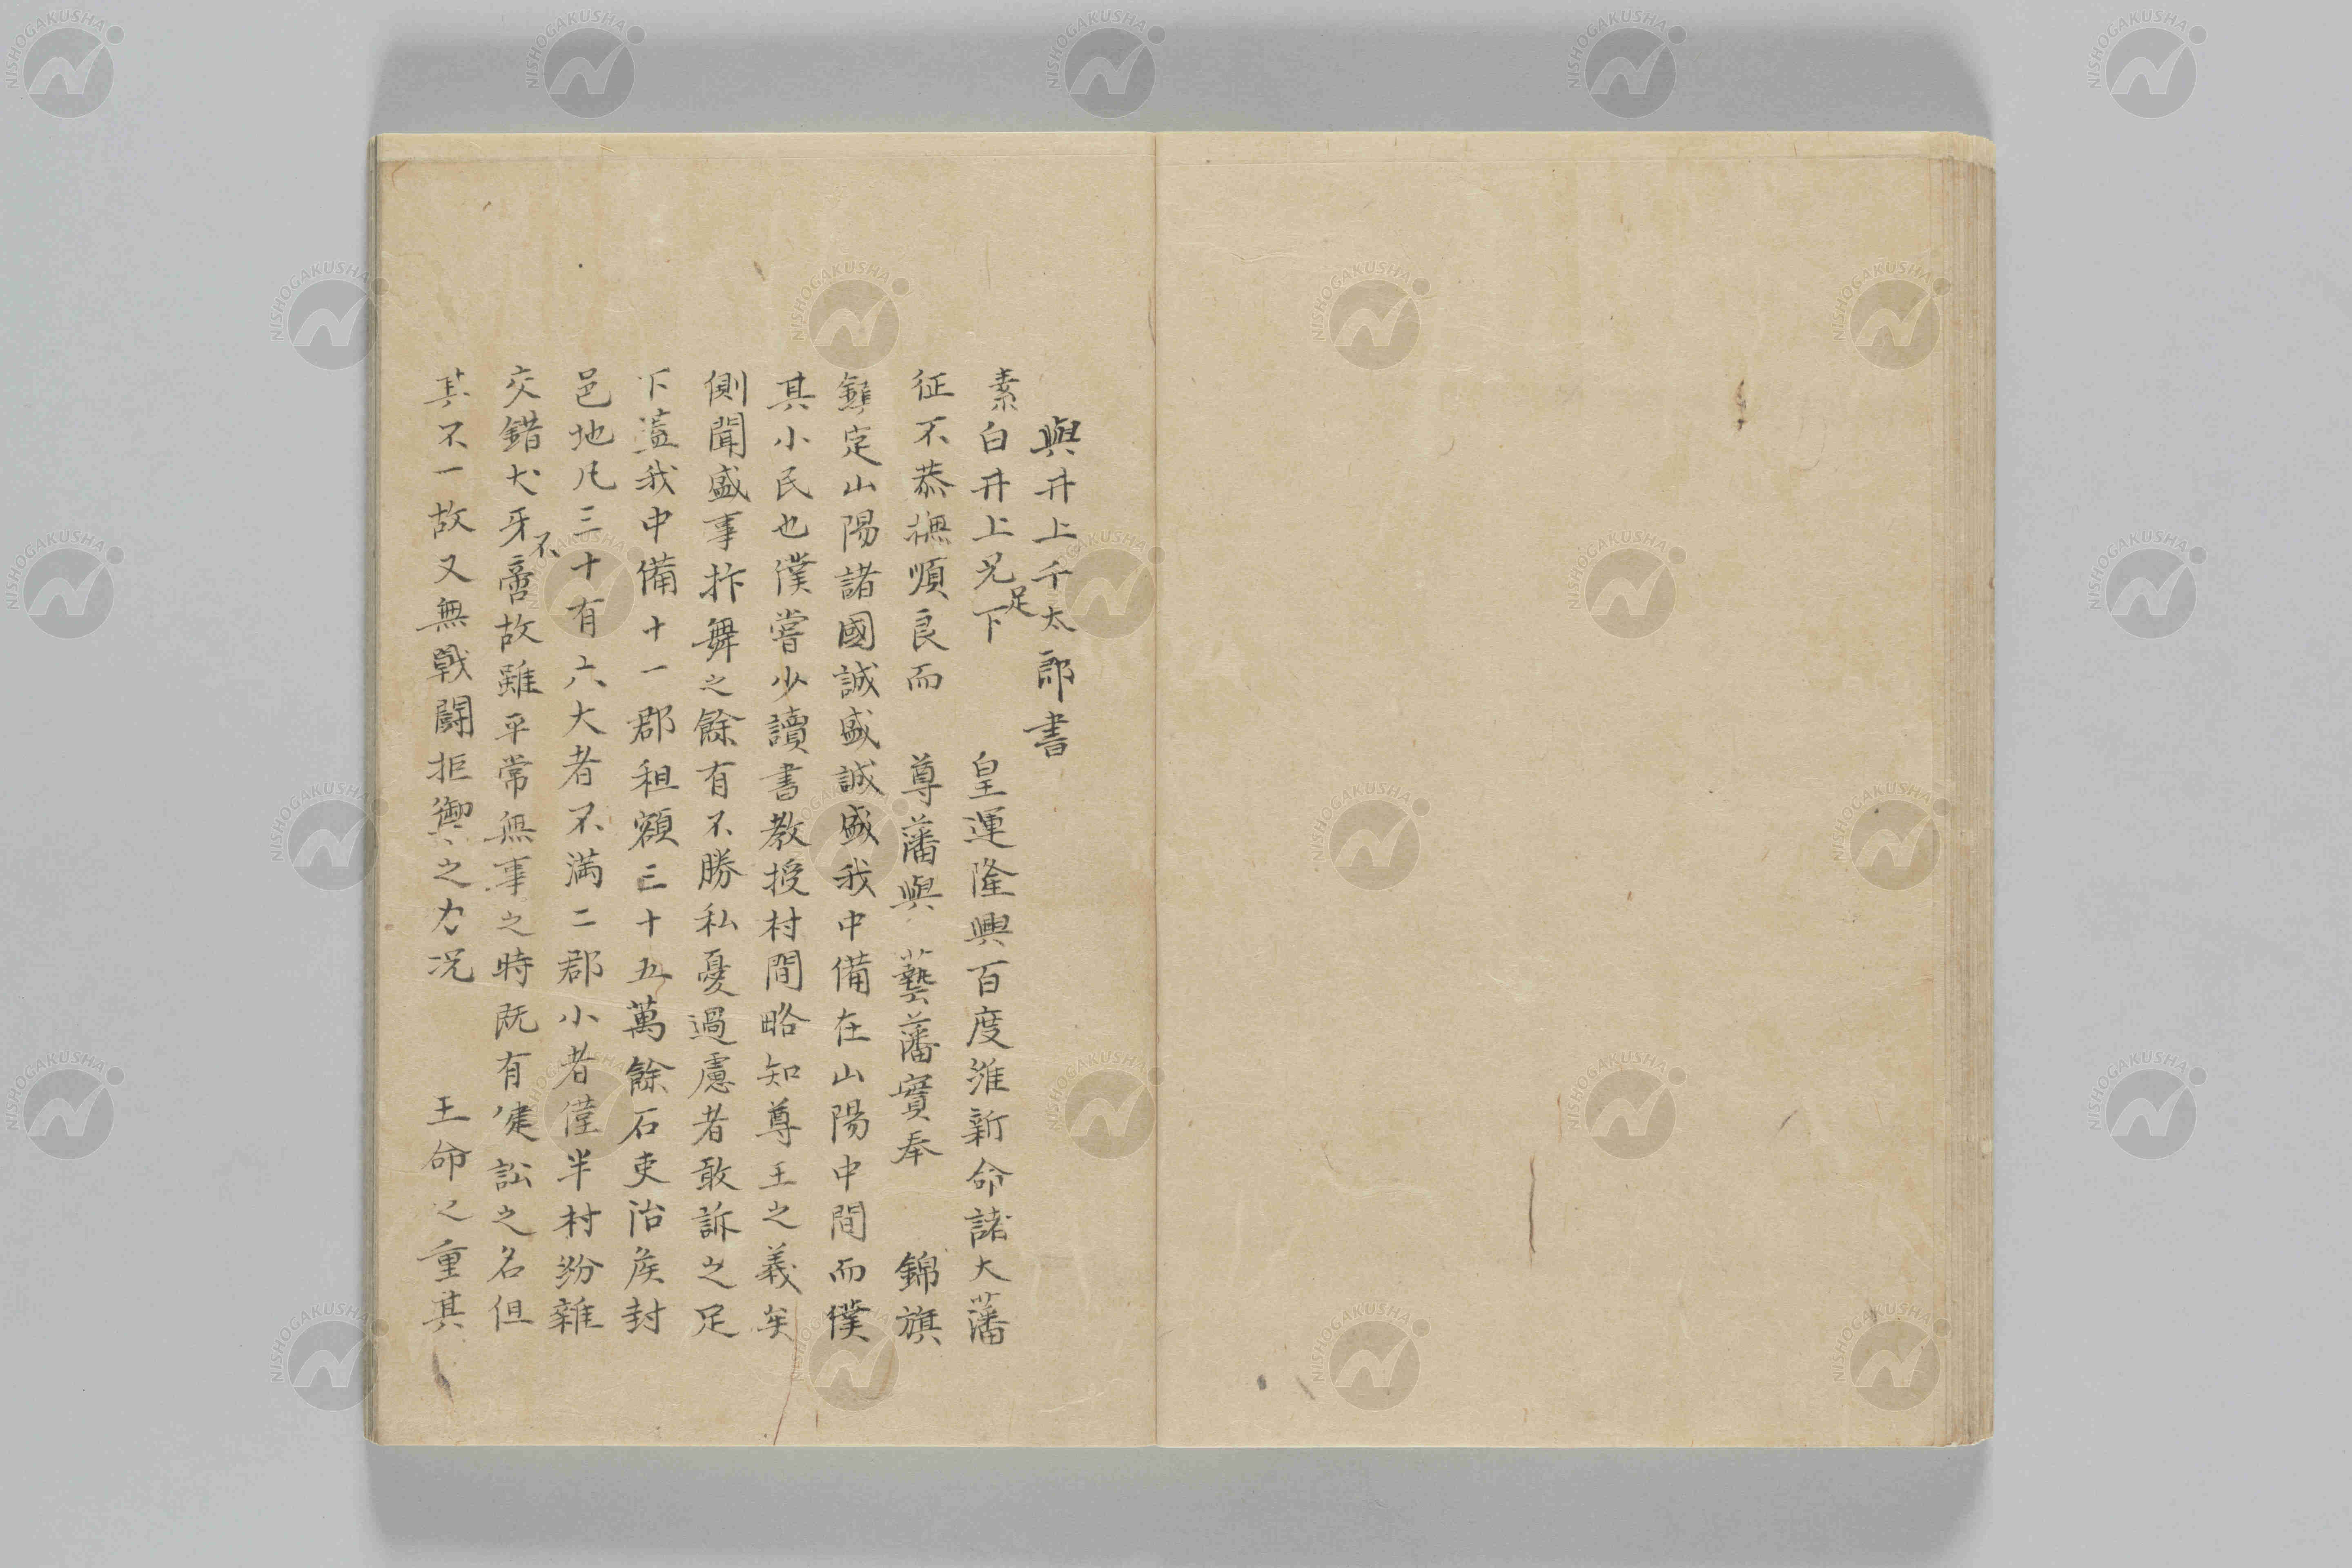 與井上千太郎書
素白井上兄足下　皇運隆興百度維新命諸大藩
征不恭撫順良而　尊藩與　藝藩實奉　錦旗
鎮定山陽諸國誠盛誠盛我中備在山陽中間而僕
其小民也僕嘗少讀書教授村間略知尊王之義矣
側聞盛事抃舞之餘有不勝私憂過慮者敢訴之足
下蓋我中備十一郡租額三十五萬餘石吏治矦封
邑地凡三十有六大者不満二郡小者僅半村紛雜
交錯犬牙不啻故雖平常無事之時既有健訟之名但
其不一故又無戰鬪拒禦之力况　王命之重其
NISHOGAKUSHA